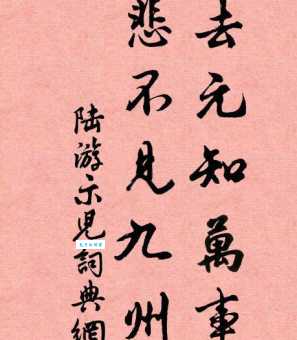 去元知萬事
悲不見九州
陸游示兒詞典網